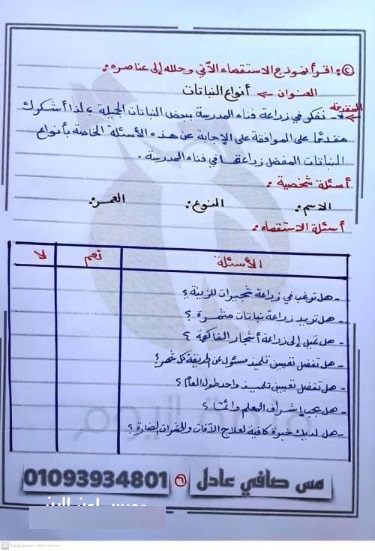 ٢: اقرأ نموذج الاستقصاء الآتي وحلله إلى عناصره:
العنوان ← أنواع النباتات
المقدمة
نفكر في زراعة فناء المدرسة ببعض النباتات الجميلة، لذا أشكرك
مقدمًا على الموافقة على الإجابة عن هذه الأسئلة الخاصة بأنواع
النباتات المفضل زراعتها في فناء المدرسة.
أسئلة شخصية:
الاسم: النوع: العمر:
أسئلة الاستقصاء:
الأسئلة نعم لا
- هل ترغب في زراعة شجيرات للزينة؟
- هل تريد زراعة نباتات مثمرة؟
- هل تميل إلى زراعة أشجار الفاكهة؟
- هل تفضل تعيين تلميذ مسئول عن الحديقة كل شهر؟
- هل تفضل تعيين تلميذ واحد طول العام؟
- هل يجب إشراف المعلم دائمًا؟
- هل لديك خبرة كافية لعلاج الآفات والحشرات الضارة؟
مس صافي عادل ٦ 01093934801